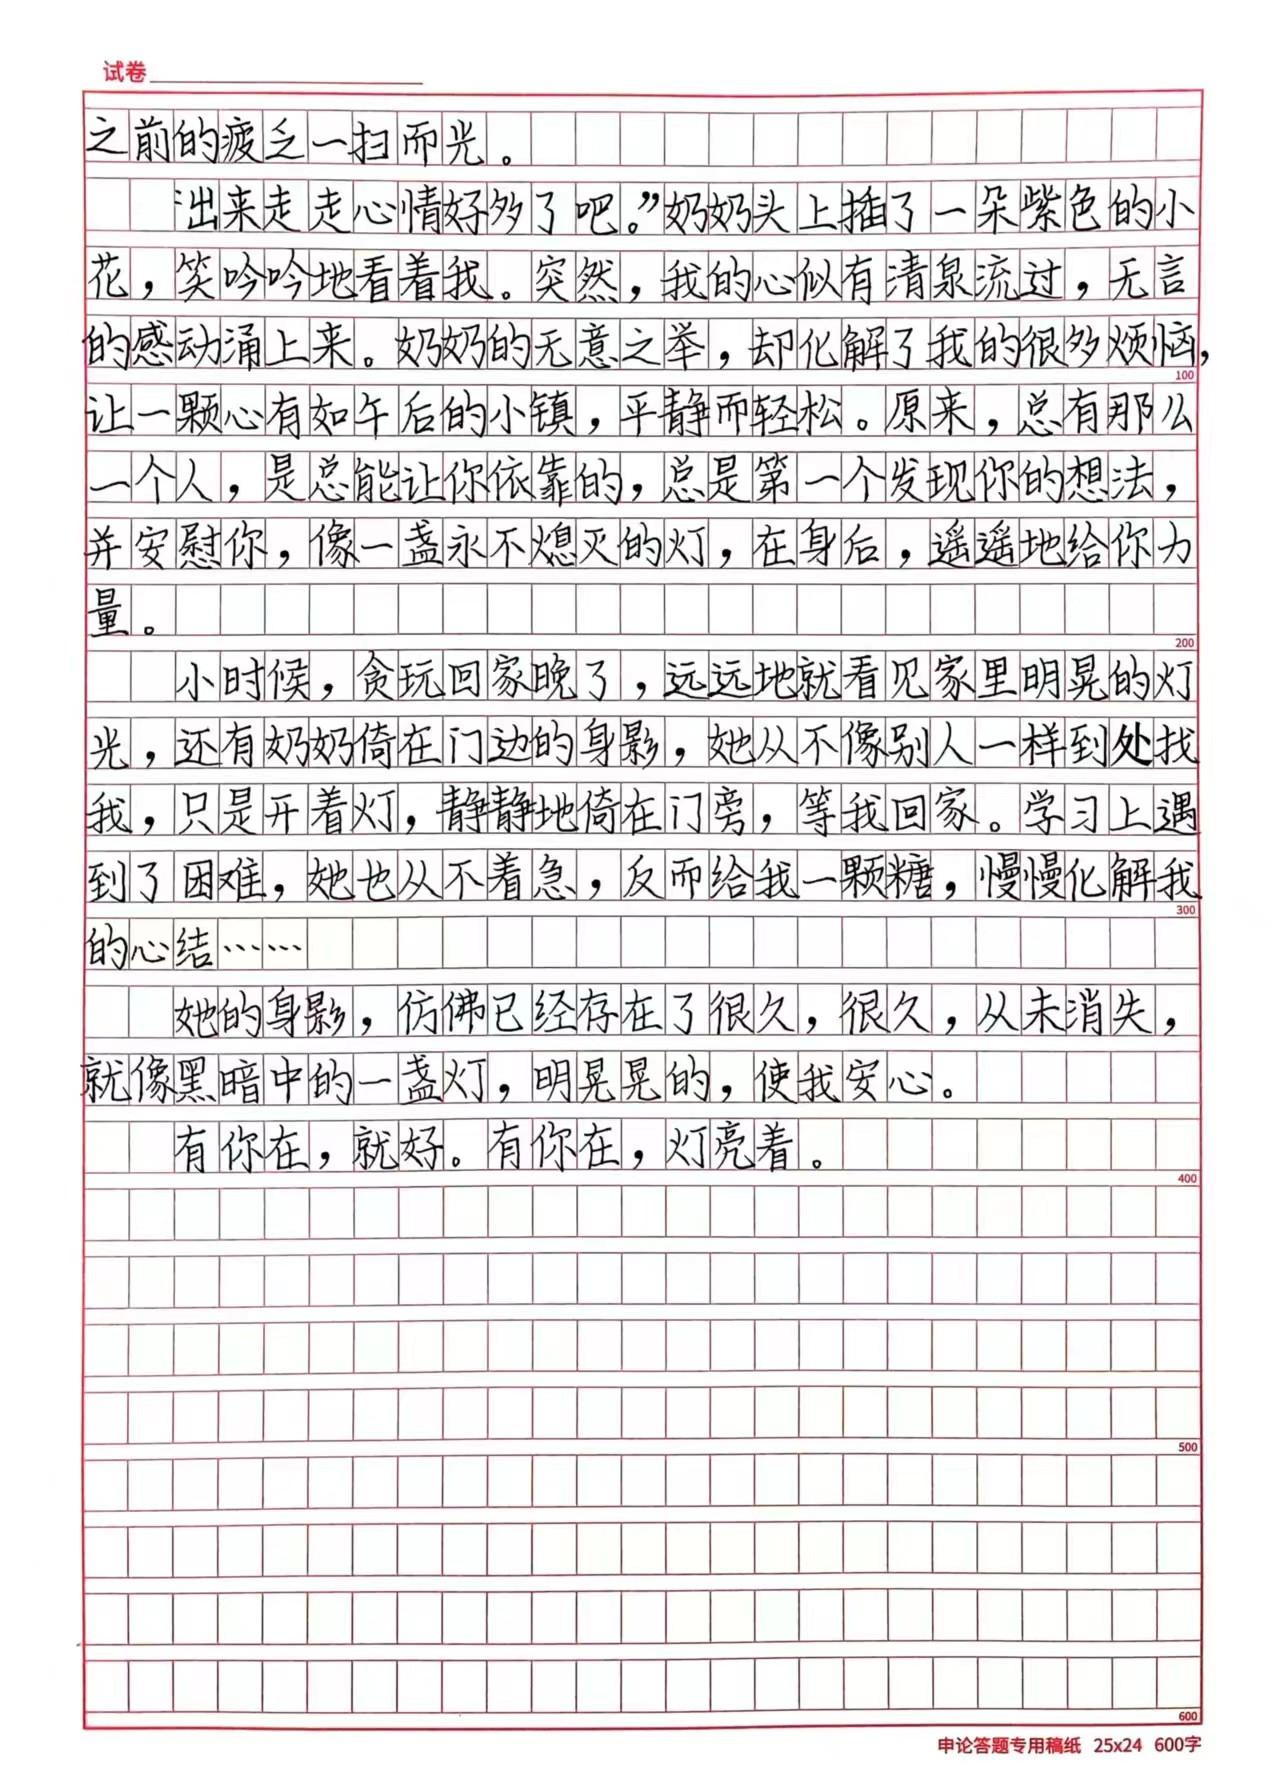 试卷
之前的疲乏一扫而光。
“出来走走心情好多了吧。”奶奶头上插了一朵紫色的小
花，笑吟吟地看着我。突然，我的心似有清泉流过，无言
的感动涌上来。奶奶的无意之举，却化解了我的很多烦恼，
100
让一颗心有如午后的小镇，平静而轻松。原来，总有那么
一个人，是总能让你依靠的，总是第一个发现你的想法，
并安慰你，像一盏永不熄灭的灯，在身后，遥遥地给你力
量。
200
小时候，贪玩回家晚了，远远地就看见家里明晃的灯
光，还有奶奶倚在门边的身影，她从不像别人一样到处找
我，只是开着灯，静静地倚在门旁，等我回家。学习上遇
到了困难，她也从不着急，反而给我一颗糖，慢慢化解我
300
的心结……
她的身影，仿佛已经存在了很久，很久，从未消失，
就像黑暗中的一盏灯，明晃晃的，使我安心。
有你在，就好。有你在，灯亮着。
400
500
600
申论答题专用稿纸 25x24 600字